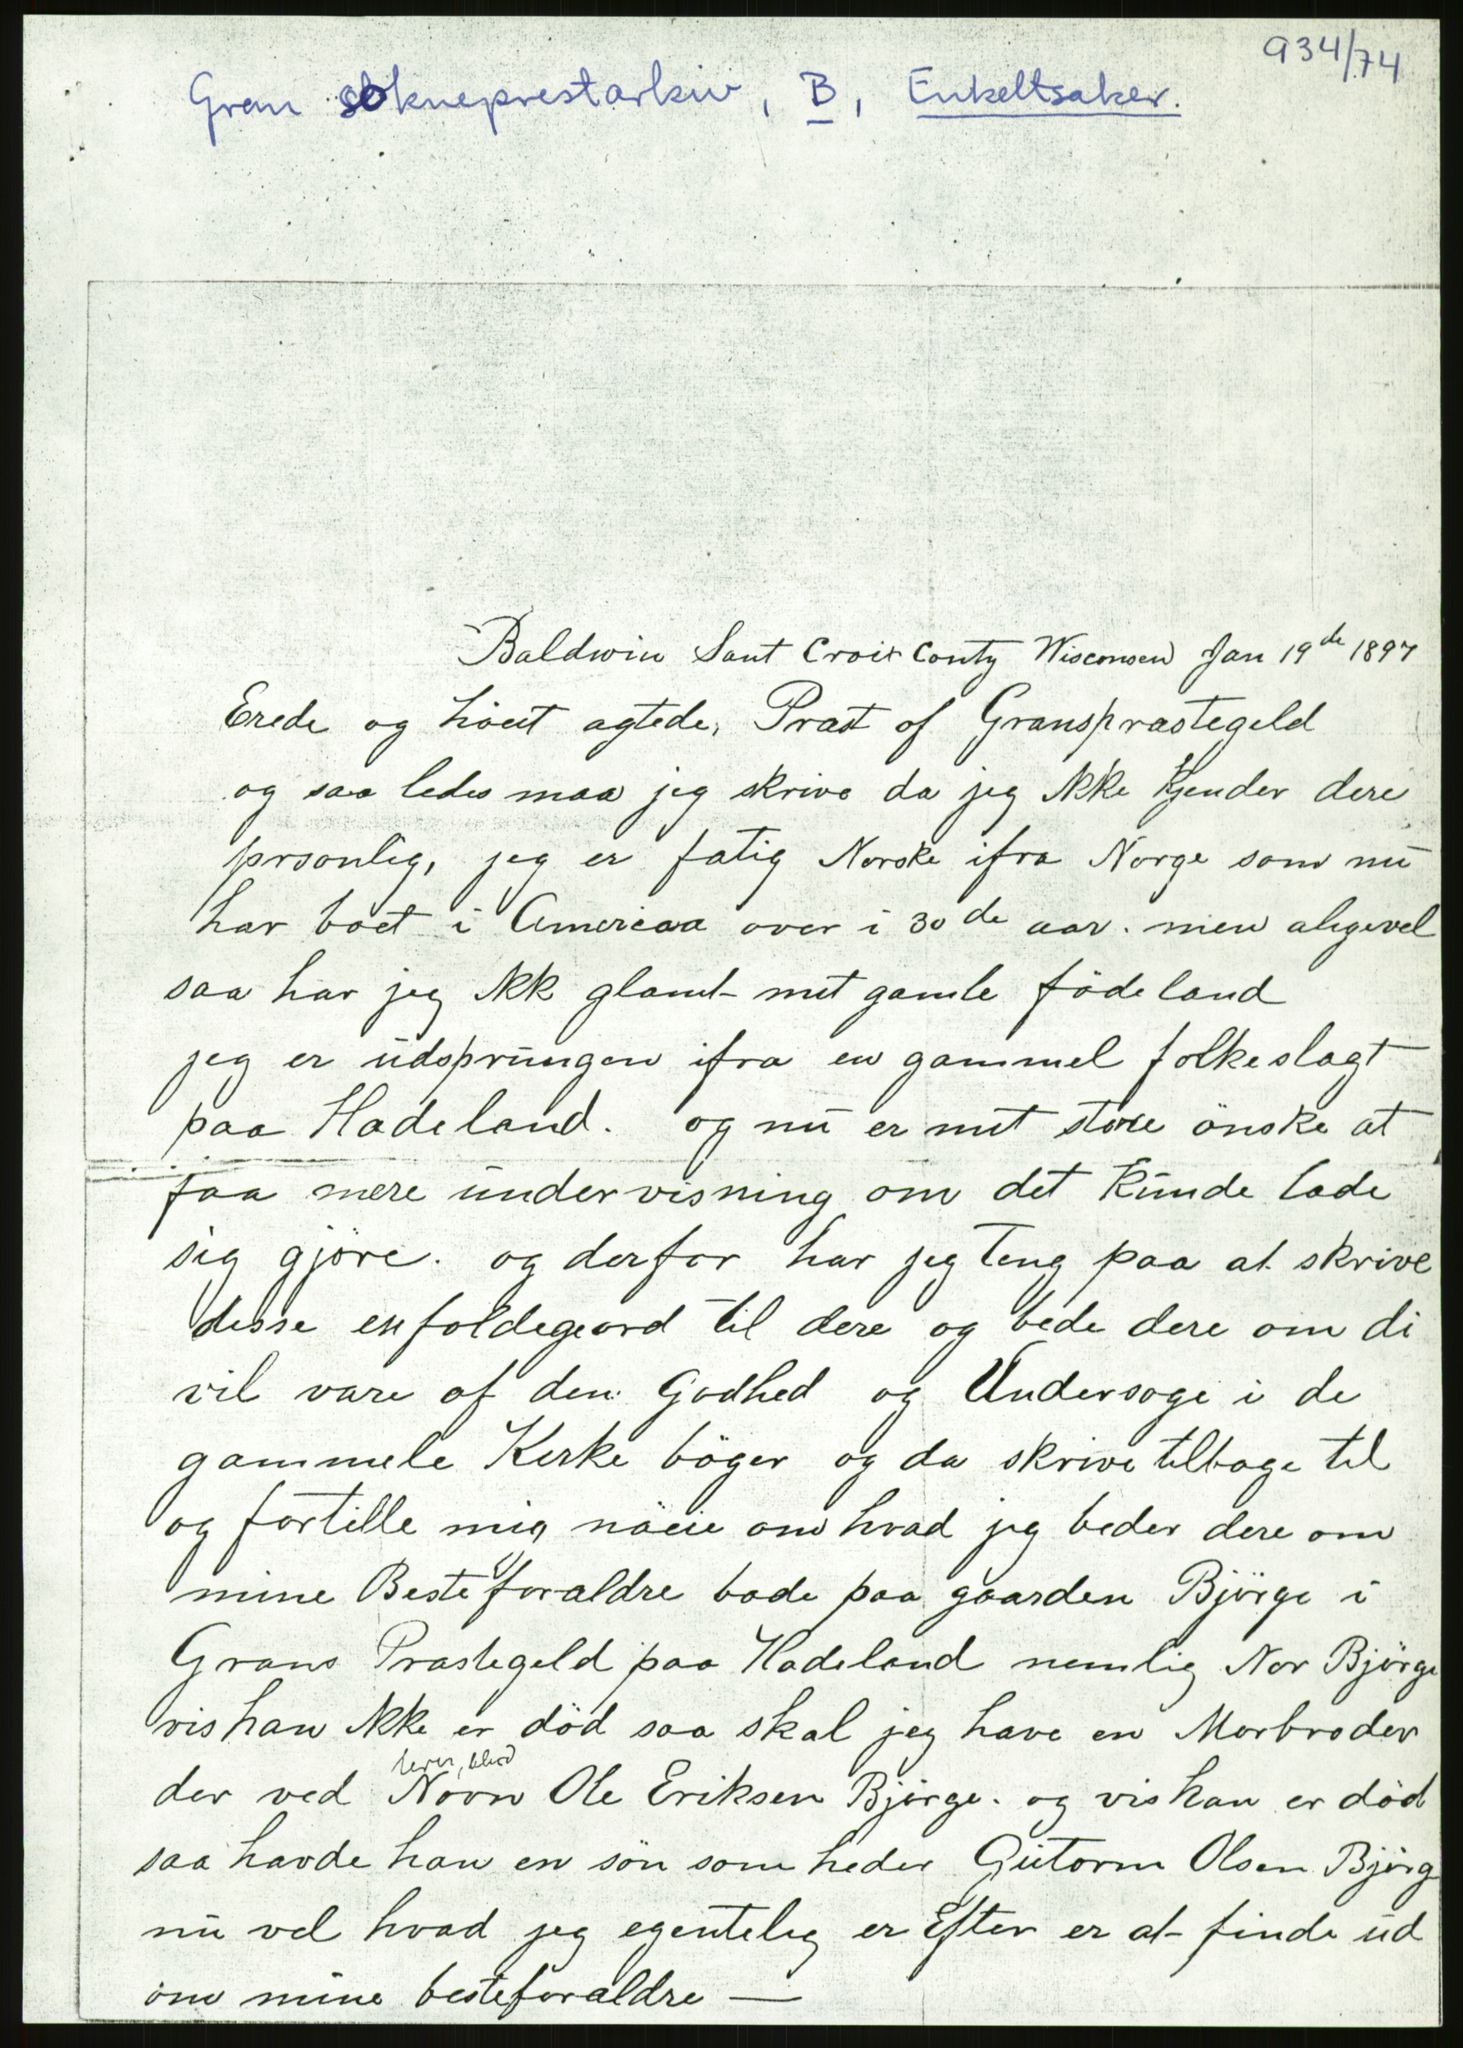 934/74
Gran sokneprestarkiv, B, Enkeltsaker.
Baldwin Sant Croix Conty Wisconsen Jan 19de 1897
Erede og höiest agtede, Prast of Gransprastegeld
og saa ledes maa jeg skrive da jeg Ikke Kjender dere
prsonlig, jeg er fatig Norske ifra Norge som nu
har boet i Americaa over i 30de aar. men aligevel
saa har jeg Ikk glamt mit gamle födeland
jeg er udsprungen ifra en gammel folkeslagt
paa Hadeland. og nu er mit store önske at
faa mere undervisning om det Kunde lade
sig gjöre. og derfor har jeg teng paa at skrive
disse enfoldegeord til dere og bede dere om di
vil vare of den Godhed og Undersoge i de
gammele Kerke böger og da skrive tilbage til
og fortille mig nöeie om hvad jeg beder dere om
mine Besteforaldre bode paa gaarden Björge i
Grans Prastegeld paa Hadeland nemlig Nor Björge
vis han Ikke er död saa skal jeg have en Morbroder
lever, blind
der ved Novn Ole Eriksen Björge. og vis han er död
saa havde han en sön som heder Gutorm Olsen Björg
nu vel hvad jeg egentelig er Efter er at finde ud
om mine besteforaldre —